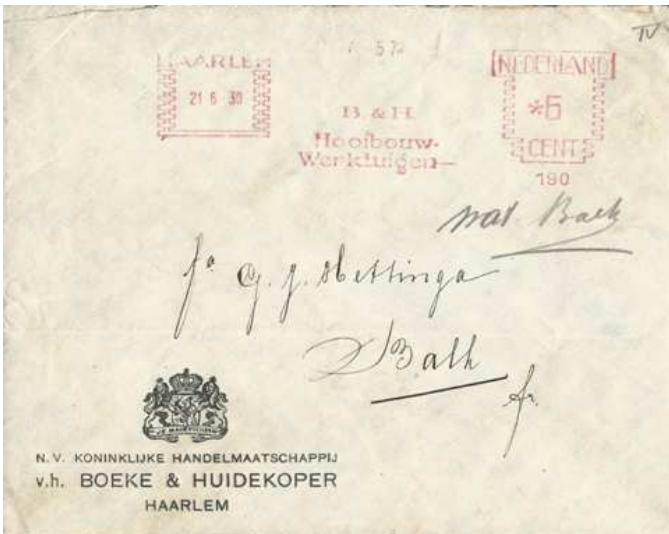 IV
HAARLEM
21 6 30
5 72
B. & H.
Hooibouw-
Werktuigen—
NEDERLAND
*6
CENT
190
nat. Balk
fa G. J. Mettinga
Balk
fr.
N.V. KONINKLIJKE HANDELMAATSCHAPPIJ
v.h. BOEKE & HUIDEKOPER
HAARLEM